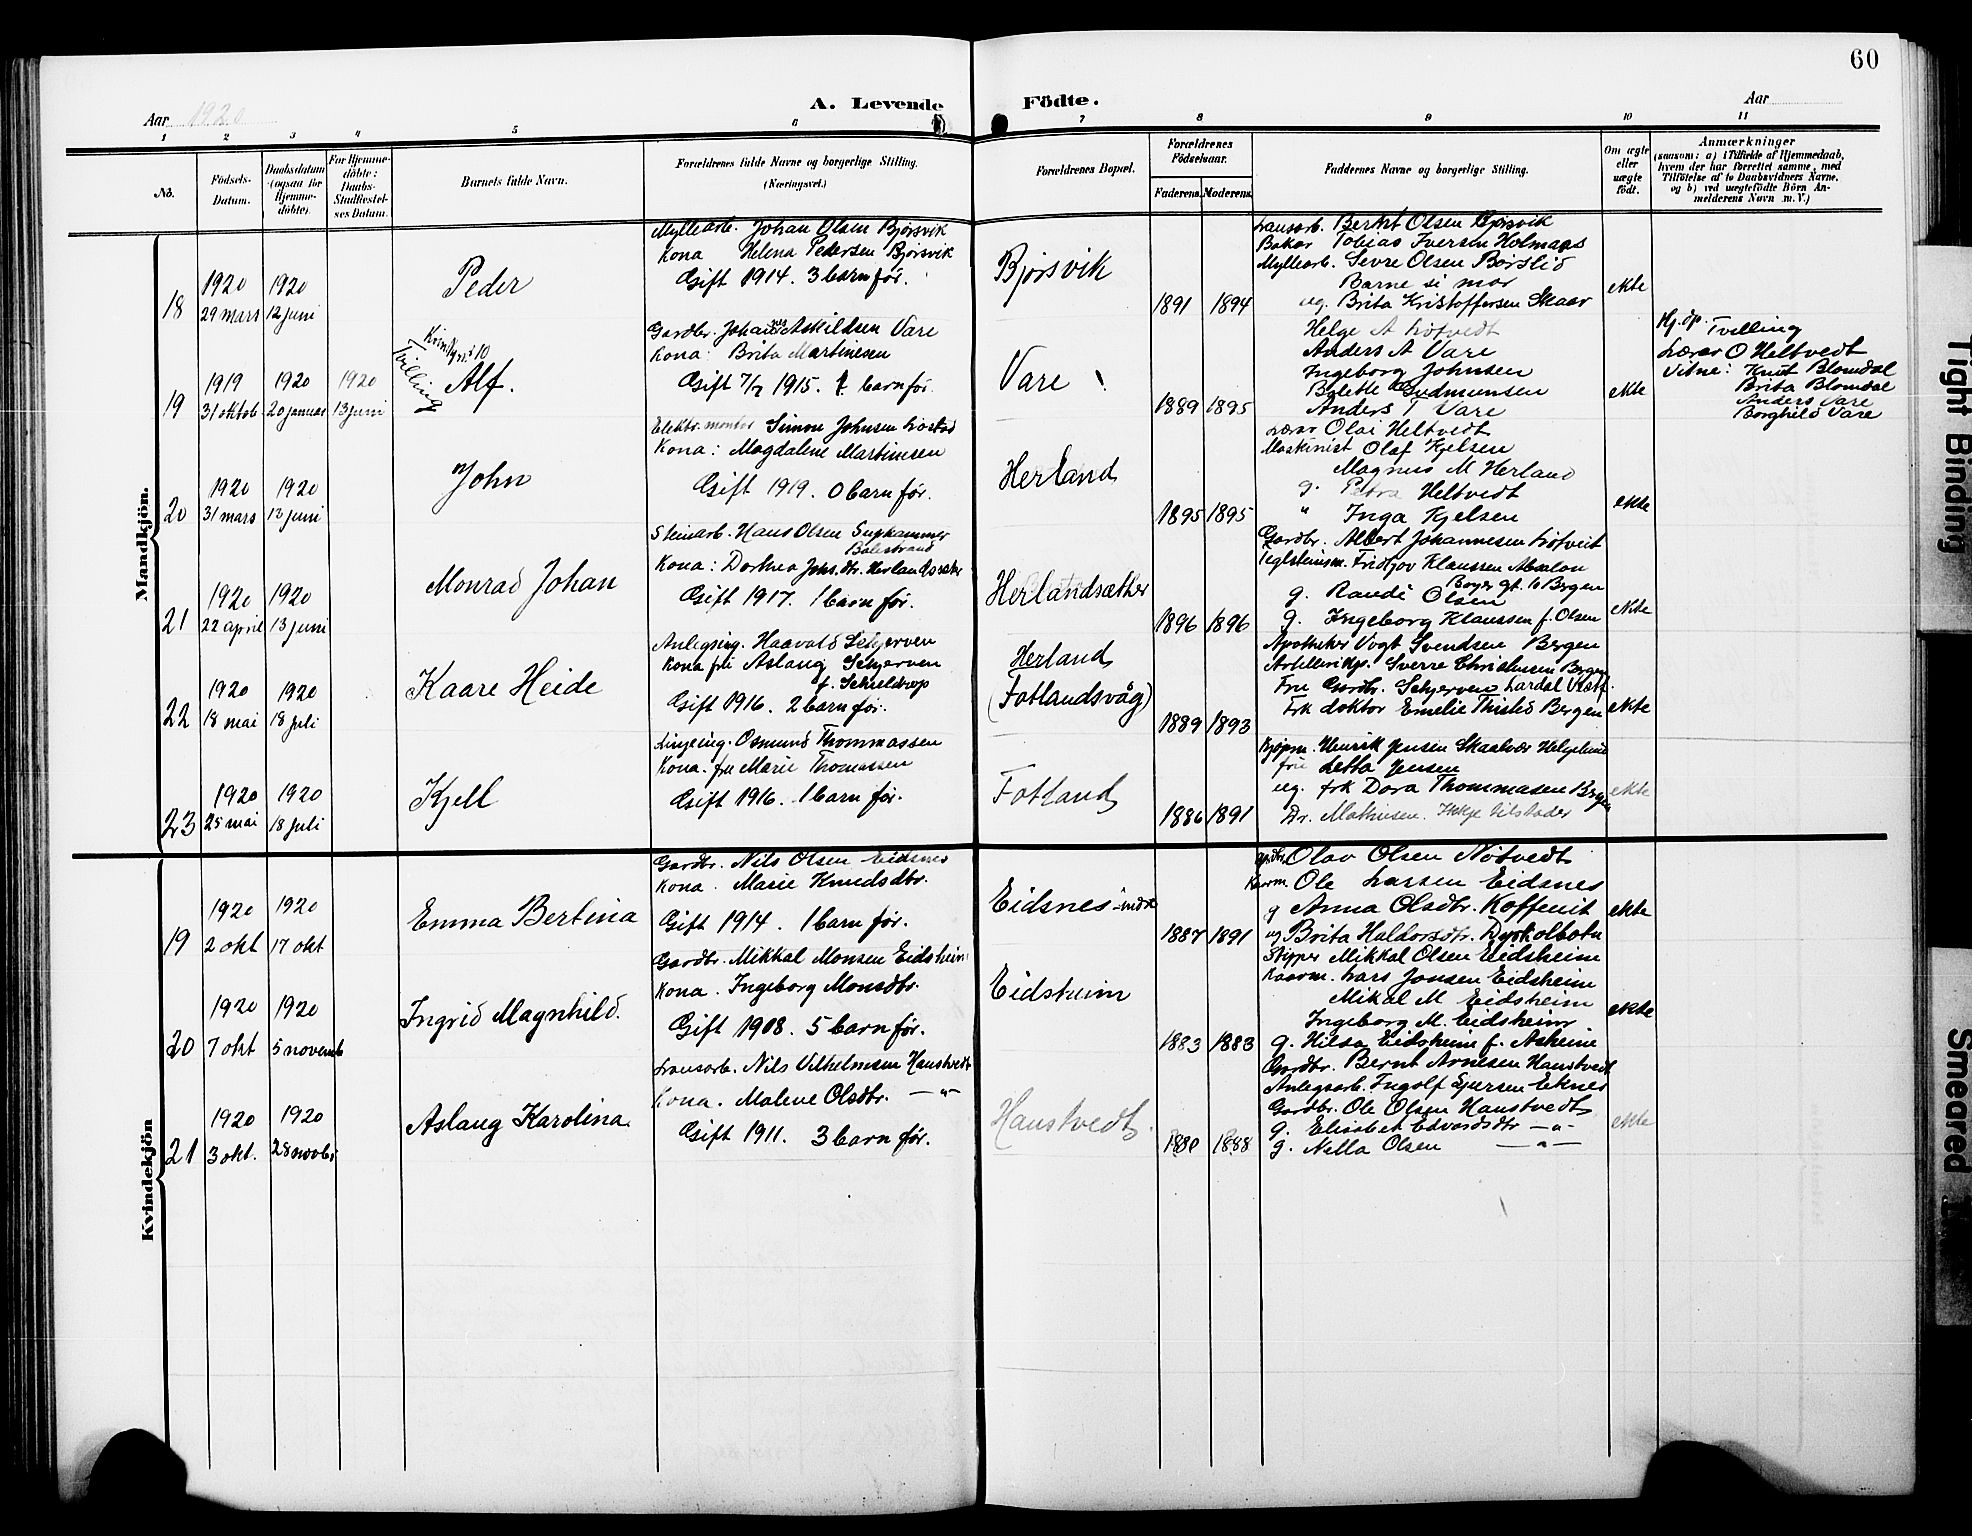 60
Aar 1920
A. Levende Födte.
Aar
1 2 3 4 5 6 7 8 9 10 11
No.
Födsels-
Datum.
Daabsdatum
(ogsaa for
Hjemme-
döbte).
For Hjemme-
döbte:
Daabs-
Stadfæstel-
ses Datum.
Barnets fulde Navn.
Forældrenes fulde Navne og borgerlige Stilling.
(Næringsvei.)
Forældrenes Bopæl.
Forældrenes
Födselsaar.
Faderens. Moderens.
Faddernes Navne og borgerlige Stilling.
Om ægte
eller
uægte
född.
Anmærkninger
(saasom: a) i Tilfælde af Hjemmedaab,
hvem der har forrettet samme, med
Tilföielse af to Daabsvidners Navne,
og b) ved uægtefödte Börn An-
melderens Navn m. V.)
Mandkjön.
18
1920
29 mars
1920
12 juni
Peder
Myllearb. Johan Olsen Bjørsvik
Kona Helena Pedersen Bjørsvik
Gift 1914. 3 barn før.
Bjørsvik
1891 1894
Lausarb. Berent Olsen Bjørsvik
Bakar Tobias Iversen Holmaas
Myllearb. Sevre Olsen Børslid
Barne si mor
ug. Brita Kristoffersen Skaar
ekte
19
1919
31 oktob
1920
20 januar
1920
13 juni
Tvilling
Alf.
Gardbr. Johannes Askildsen Vare
Kona: Brita Martinesen
Gift 7/7 1915. barn før.
Vare
1889 1895
Helge A Løtvedt
Anders A Vare
Ingeborg Johnsen
Bolette Gudmunsen
Anders T Vare
ekte
Hj. dp. Tvilling
Lærar O Heltvedt
Vitne: Knut Blomdal
Brita Blomdal
Anders Vare
Borghild Vare
20
1920
31 mars
1920
13 juni
John
Elektr. montør Simon Johnsen
Kona: Magdalene Martinesen
Gift 1919. 0 barn før.
Herland
1895 1895
Lærar Olai Heltvedt
Maskinist Olaf Kjelsen
Magnus M Herland
g. Petra Heltvedt
" Inga Kjelsen
ekte
21
1920
22 april
1920
13 juni
Monrad Johan
Steinarb. Hans Olsen
Balestrand
Kona: Dorthea Johs. dtr. Herlandssæter
Gift 1917. 1 barn før.
Herlandsæther
1896 1896
Gardbr. Albert Johannesen Løtveit
Teglsteinsm. Fridtjov Klaussen
Bergen
g. Randi Olsen
g. Ingeborg Klaussen f. Olsen
ekte
22
1920
18 mai
1920
18 juli
Kaare Heide
Anlegsing. Haavald Schjerven
Kona fru Aslaug Schjerven
f. Schieldrop
Gift 1916. 2 barn før.
Herland
(Fotlandsvåg)
1889 1893
Apotheker Vogt Svendsen Bergen
Artillerikp. Sverre Christensen Bergen
Fru Gardbr. Schjerven Lardal Vestf.
Frk doktor Emelie Thisted Bergen
ekte
23
1920
25 mai
1920
18 juli
Kjell
Linjeing. Osmund Thommassen
Kona. fru Marie Thomassen
Gift 1916. 1 barn før.
Fotland
1886 1891
Kjøpm. Henrik Jensen Skaalvær Helgeland
fru Letta Jensen
ug. frk Dora Thommasen Bergen
Dr. Mathiesen. Ikkje tilstader
ekte
Kvindekjön
19
1920
2 okt
1920
17 okt
Emma Bertina
Gardbr. Nils Olsen Eidsnes
Kona. Marie Knudsdtr.
Gift 1914. 1 barn før.
Eidsnes indre
1887 1891
grdbr. Olav Olsen Nøtvedt
Kaarm. Ole Larsen Eidsnes
g Anna Olsdtr. Koffenit
ug Brita Haldorsdtr. Dyrkolbotn
ekte
20
1920
7 okt
1920
5 novemb
Ingrid Magnhild.
Gardbr. Mikkal Monsen Eidsheim
Kona. Ingeborg Monsdtr.
Gift 1908. 5 barn før.
Eidsheim
1883 1883
Skipper Mikkal Olsen Eidsheim
Kaarm. Lars Jonsen Eidsheim
Mikal M Eidsheim
Ingeborg M. Eidsheim
g. Hilda Eidsheim f. Askeim
ekte
21
1920
3 okt.
1920
28 novbr
Aslaug Karolina.
Lausarb. Nils Vilhelmsen Haustvedt
Kona. Malene Olsdtr. —"—
Gift 1911. 3 barn før.
Haustvedt.
1880 1888
Gardbr. Bernt Arnesen Haustvedt
Anlegsarb. Ingolf Ejersen Eknes
Gardbr. Ole Olsen Haustvedt
g. Elisabet Edvardsdtr —"—
g. Nella Olsen —"—
ekte
Tight Binding
Smeared